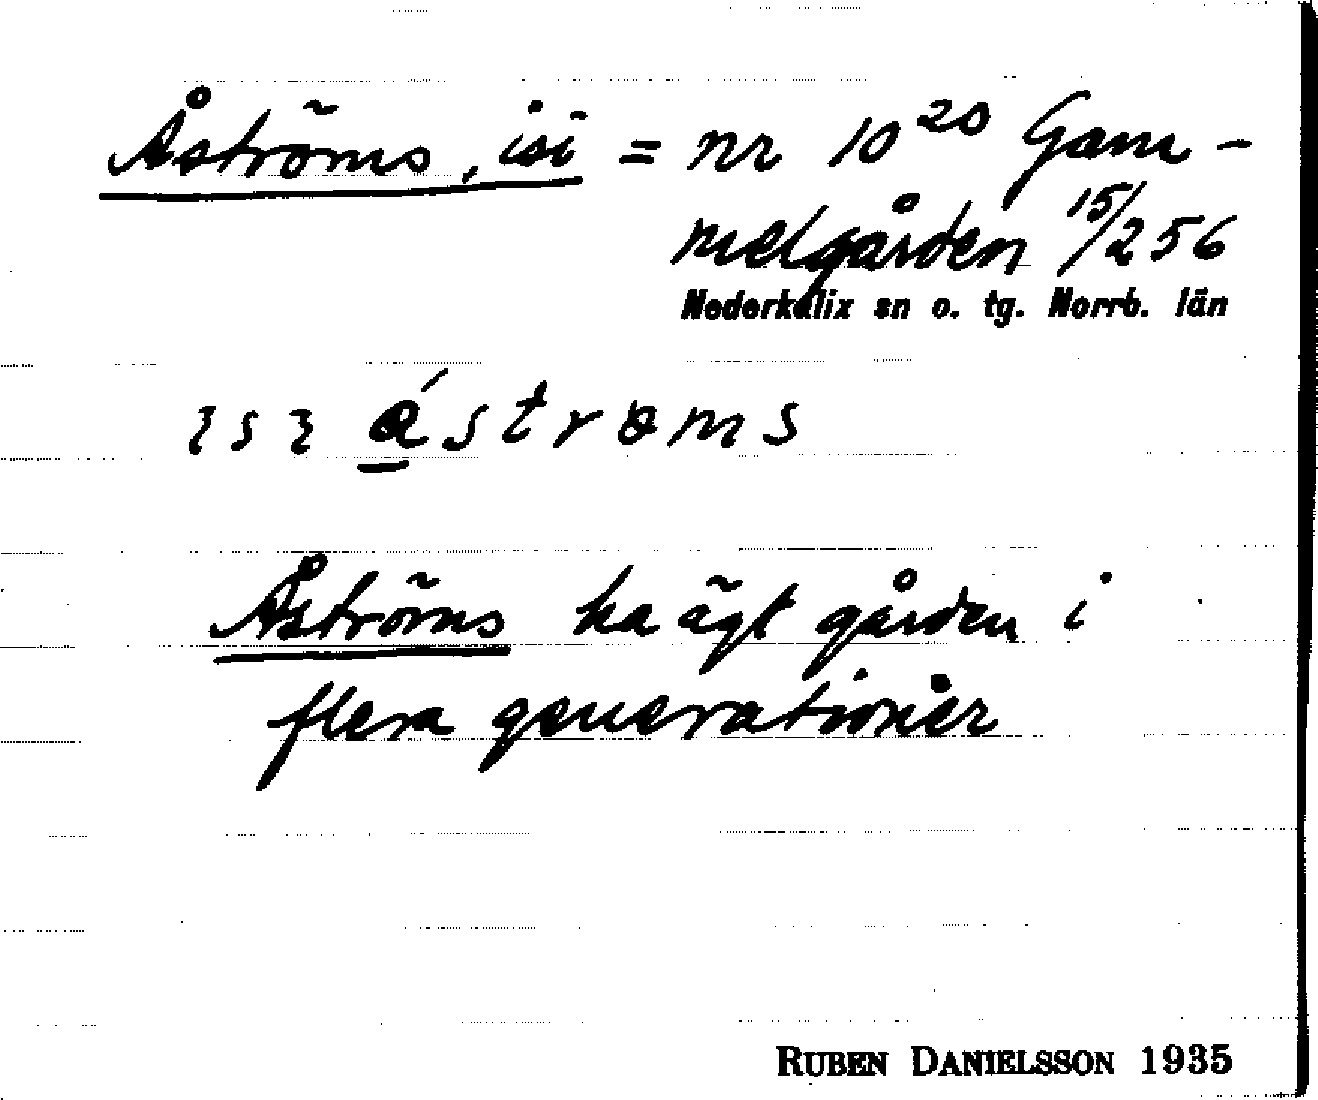 Åströms, isi = nr 10²⁰ Gam-
melgården 15/256
Nederkalix sn o. tg. Norrb. län
ɩsɩ ásträms
Åströms ha ägt gården i
flera generationer
RUBEN DANIELSSON 1935